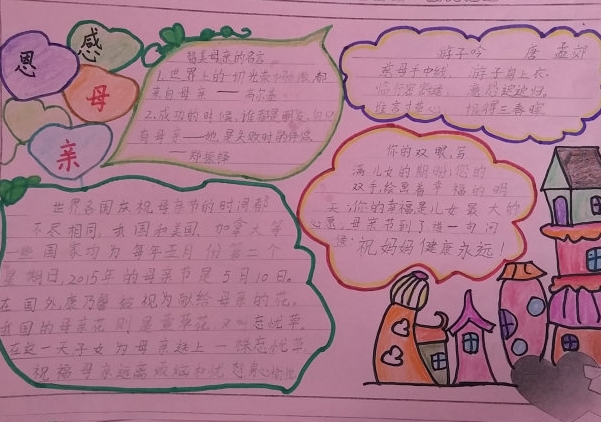 感
恩
母
亲
赞美母亲的名言
1.世界上的一切光荣和骄傲,都
来自母亲 —— 高尔基
2.成功的时候,谁都是朋友,但只
有母亲——她是失败时的伴侣。
——郑振铎
游子吟 唐 孟郊
慈母手中线 游子身上衣.
临行密密缝 意恐迟迟归.
谁言寸草心 报得三春晖
你的双眼,写
满儿女的期盼;您的
双手,绘画着幸福的明
天;你的幸福是儿女最大的
心愿,母亲节到了道一句问
候:祝妈妈健康永远!
世界各国庆祝母亲节的时间都
不尽相同,我国和美国、加拿大等
一些国家均为每年五月份第二个
星期日,2015年的母亲节是5月10日。
在国外,康乃馨被视为献给母亲的花。
我国的母亲花则是萱草花,又叫忘忧草。
在这一天子女为母亲送上一株忘忧草
祝福母亲远离烦恼和忧愁